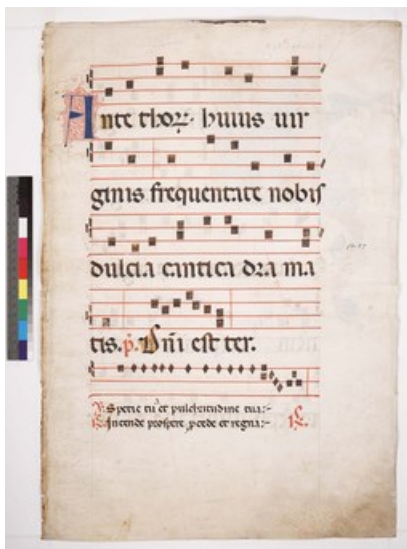 Ante thoꝝ. huius uir
ginis frequentate nobis
dulcia cantica dra ma
tis. p. Dñi est ter.
Specie tu et pulchritudine tua:-
Intende prospere procede et regna:-